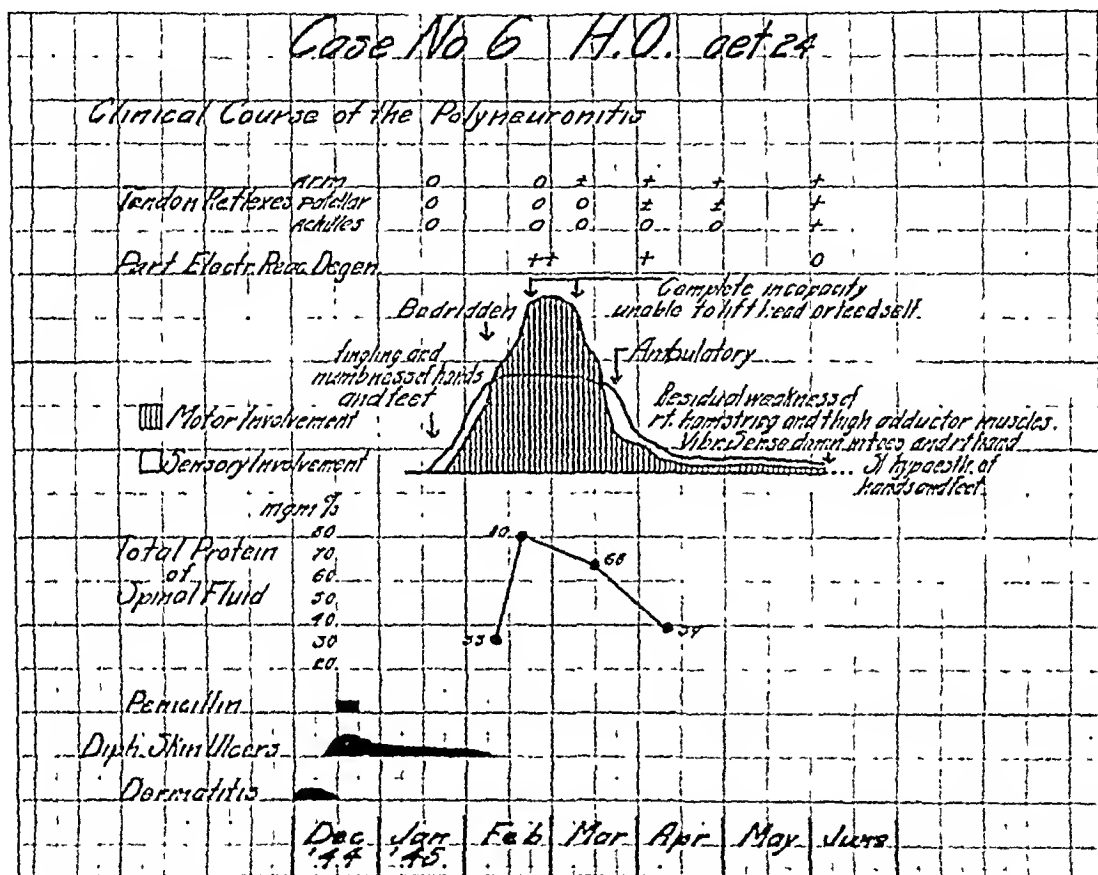 Case No 6 H.O. aet 24
Clinical Course of the Polyneuronitis
Tendon Reflexes
Arm 0 0 ± + + +
Patellar 0 0 0 ± ± +
Achilles 0 0 0 0 0 +
Part. Electr. Reac. Degen. ++ + 0
Complete incapacity
unable to lift head or feed self.
Bedridden
Ambulatory
tingling and
numbness of hands
and feet
Residual weakness of
rt. hamstring and thigh adductor muscles.
Vibr. Sense dimin. toes and rt hand
Sl hypaesth. of
hands and feet.
Motor Involvement
Sensory Involvement
mgm %
Total Protein
of
Spinal Fluid
80
70
60
50
40
30
20
80
68
33
39
Penicillin
Diph. Skin Ulcers
Dermatitis
Dec Jan Feb Mar Apr May June
'44 '45